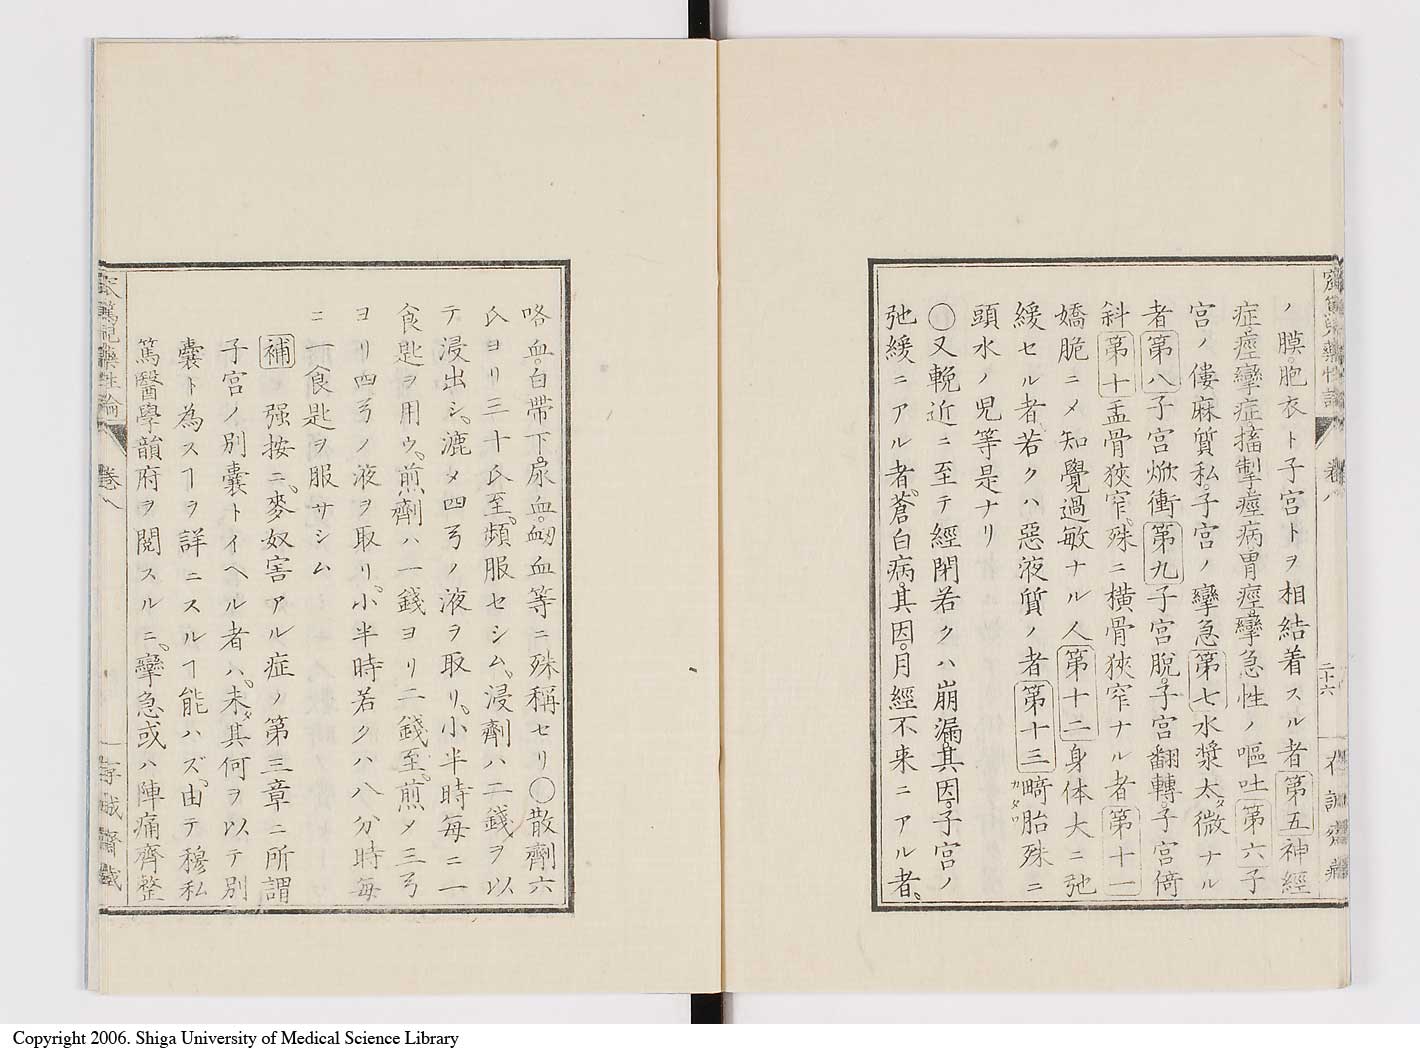 ノ膜。胞衣ト子宮トヲ相結着スル者第五神經
症。痙攣症。搐掣。痙病。胃痙攣。急性ノ嘔吐第六子
宮ノ僂麻質私。子宮ノ攣急第七水漿太タ微ナル
者第八子宮焮衝第九子宮脫。子宮翻轉。子宮倚
斜第十盂骨狹窄。殊ニ橫骨狹窄ナル者第十一
嬌脆ニメ知覺過敏ナル人第十二身体大ニ弛
緩セル者。若クハ惡液質ノ者第十三畸胎殊ニ
カタワ
頭水ノ児等是ナリ
〇又輓近ニ至テ經閉若クハ崩漏。其因。子宮ノ
弛緩ニアル者。蒼白病。其因。月經不来ニアル者。
卷八
二十六
咯血。白帶下。尿血。衂血等ニ殊稱セリ〇散劑六
氏ヨリ三十氏至。頻服セシム。浸劑ハ二錢ヲ以
テ浸出シ。漉メ四弓ノ液ヲ取リ。小半時每ニ一
食匙ヲ用ウ。煎劑ハ一錢ヨリ二錢至。煎メ三弓
ヨリ四弓ノ液ヲ取リ。小半時若クハ八分時每
ニ一食匙ヲ服サシム
補 强按ニ。麥奴害アル症ノ第三章ニ所謂
子宮ノ別嚢トイヘル者ハ。未タ其何ヲ以テ別
嚢ト為スヿヲ詳ニスルヿ能ハズ。由テ穆私
篤醫學韻府ヲ閱スルニ。攣急或ハ陣痛齊整
藥性論
卷八
Copyright 2006. Shiga University of Medical Science Library